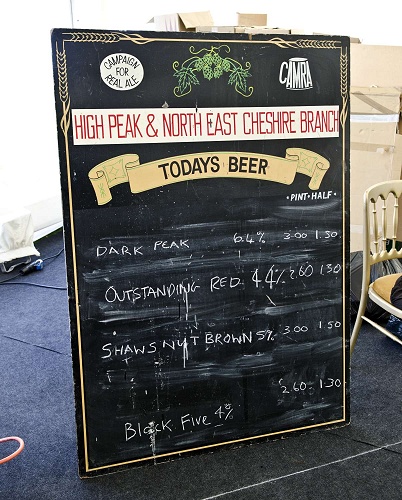 CAMPAIGN
FOR
REAL ALE
CAMRA
HIGH PEAK & NORTH EAST CHESHIRE BRANCH
TODAYS BEER
• PINT • HALF •
DARK PEAK 6.4% 3.00 1.50
OUTSTANDING RED 4.4% 2.60 1.30
SHAWS NUT BROWN 5% 3.00 1.50
2.60 1.30
Black Five 4%